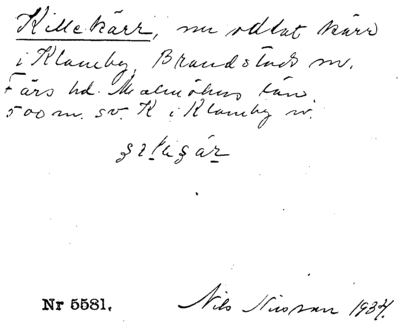 Killekärr, nu odlat kärr
i Klamby, Brandstads sn.
Färs hd. Malmöhus län.
500 m. sv. K i Klamby
Nr 5581. Nils Nilsson 1934.